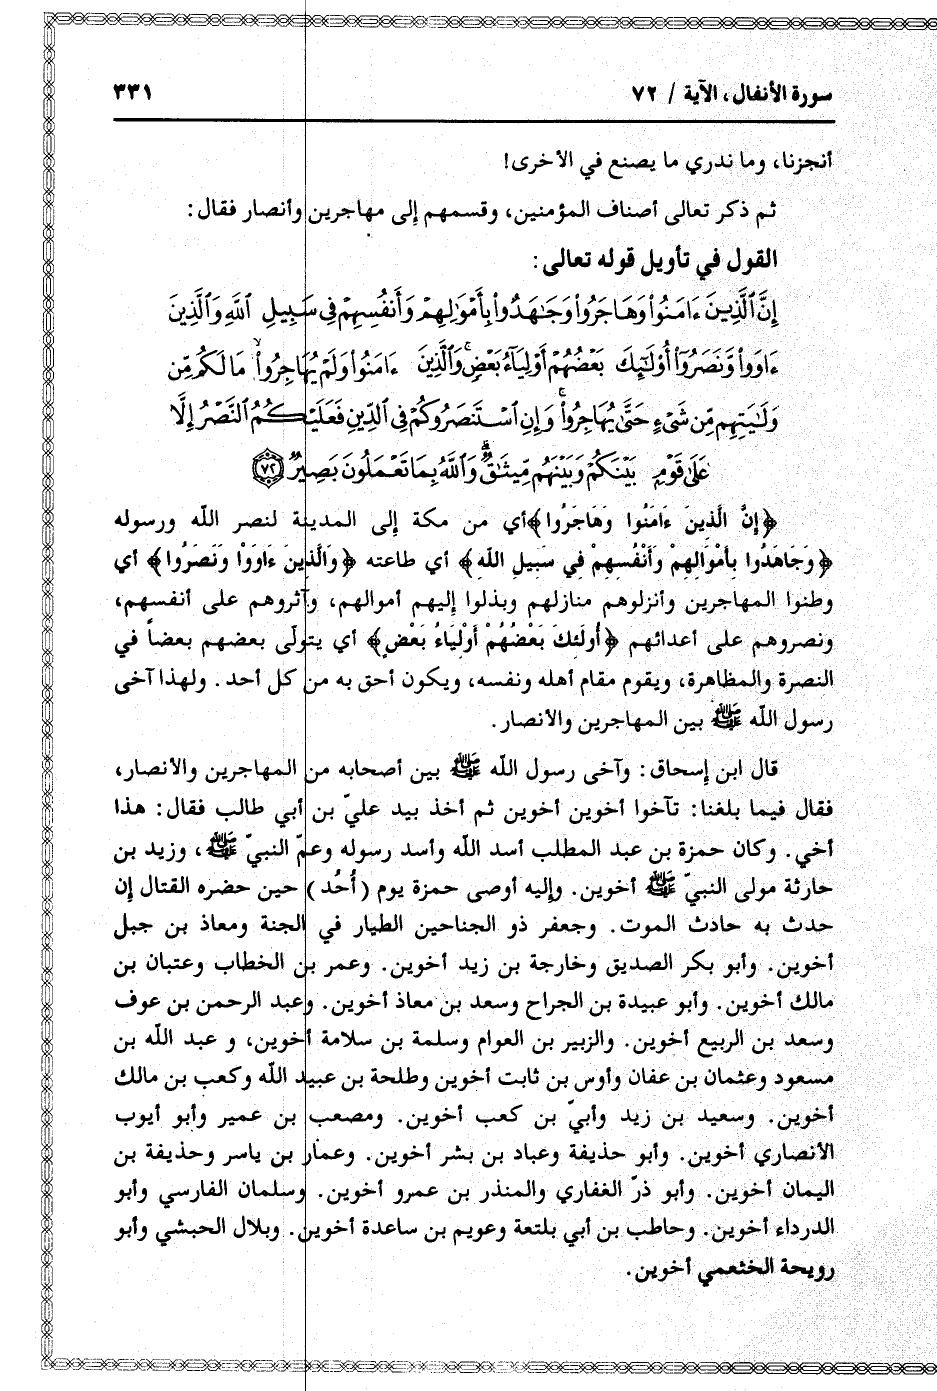 سورة الأنفال، الآية / ٧٢
٣٣١
أنجزنا، وما ندري ما يصنع في الأخرى!
ثم ذكر تعالى أصناف المؤمنين، وقسمهم إلى مهاجرين وأنصار فقال:
القول في تأويل قوله تعالى:
إِنَّ ٱلَّذِينَ ءَامَنُوا۟ وَهَاجَرُوا۟ وَجَٰهَدُوا۟ بِأَمْوَٰلِهِمْ وَأَنفُسِهِمْ فِى سَبِيلِ ٱللَّهِ وَٱلَّذِينَ
ءَاوَوا۟ وَّنَصَرُوٓا۟ أُو۟لَٰٓئِكَ بَعْضُهُمْ أَوْلِيَآءُ بَعْضٍ ۚ وَٱلَّذِينَ ءَامَنُوا۟ وَلَمْ يُهَاجِرُوا۟ مَا لَكُم مِّن
وَلَٰيَتِهِم مِّن شَىْءٍ حَتَّىٰ يُهَاجِرُوا۟ ۚ وَإِنِ ٱسْتَنصَرُوكُمْ فِى ٱلدِّينِ فَعَلَيْكُمُ ٱلنَّصْرُ إِلَّا
عَلَىٰ قَوْمٍ بَيْنَكُمْ وَبَيْنَهُم مِّيثَٰقٌ ۗ وَٱللَّهُ بِمَا تَعْمَلُونَ بَصِيرٌ ﴿٧٢﴾
﴿إِنَّ الَّذِينَ ءَامَنُوا وَهَاجَرُوا﴾أي من مكة إلى المدينة لنصر اللّه ورسوله
﴿وَجَاهَدُوا بِأَمْوَالِهِمْ وَأَنْفُسِهِمْ فِي سَبِيلِ اللّهِ﴾ أي طاعته ﴿وَالَّذِينَ ءَاوَوْا وَنَصَرُوا﴾ أي
وطنوا المهاجرين وأنزلوهم منازلهم وبذلوا إليهم أموالهم، وآثروهم على أنفسهم،
ونصروهم على أعدائهم ﴿أُولَئِكَ بَعْضُهُمْ أَوْلِيَاءُ بَعْضٍ﴾ أي يتولّى بعضهم بعضاً في
النصرة والمظاهرة، ويقوم مقام أهله ونفسه، ويكون أحق به من كل أحد. ولهذا آخى
رسول اللّه ﷺ بين المهاجرين والأنصار.
قال ابن إسحاق: وآخى رسول اللّه ﷺ بين أصحابه من المهاجرين والأنصار،
فقال فيما بلغنا: تآخوا أخوين أخوين ثم أخذ بيد عليّ بن أبي طالب فقال: هذا
أخي. وكان حمزة بن عبد المطلب أسد اللّه وأسد رسوله وعمّ النبيّ ﷺ، وزيد بن
حارثة مولى النبيّ ﷺ أخوين. وإليه أوصى حمزة يوم (أُحُد) حين حضره القتال إن
حدث به حادث الموت. وجعفر ذو الجناحين الطيار في الجنة ومعاذ بن جبل
أخوين. وأبو بكر الصديق وخارجة بن زيد أخوين. وعمر بن الخطاب وعتبان بن
مالك أخوين. وأبو عبيدة بن الجراح وسعد بن معاذ أخوين. وعبد الرحمن بن عوف
وسعد بن الربيع أخوين. والزبير بن العوام وسلمة بن سلامة أخوين، و عبد اللّه بن
مسعود وعثمان بن عفان وأوس بن ثابت أخوين وطلحة بن عبيد اللّه وكعب بن مالك
أخوين. وسعيد بن زيد وأبيّ بن كعب أخوين. ومصعب بن عمير وأبو أيوب
الأنصاري أخوين. وأبو حذيفة وعباد بن بشر أخوين. وعمار بن ياسر وحذيفة بن
اليمان أخوين. وأبو ذرّ الغفاري والمنذر بن عمرو أخوين. وسلمان الفارسي وأبو
الدرداء أخوين. وحاطب بن أبي بلتعة وعويم بن ساعدة أخوين. وبلال الحبشي وأبو
رويحة الخثعمي أخوين.